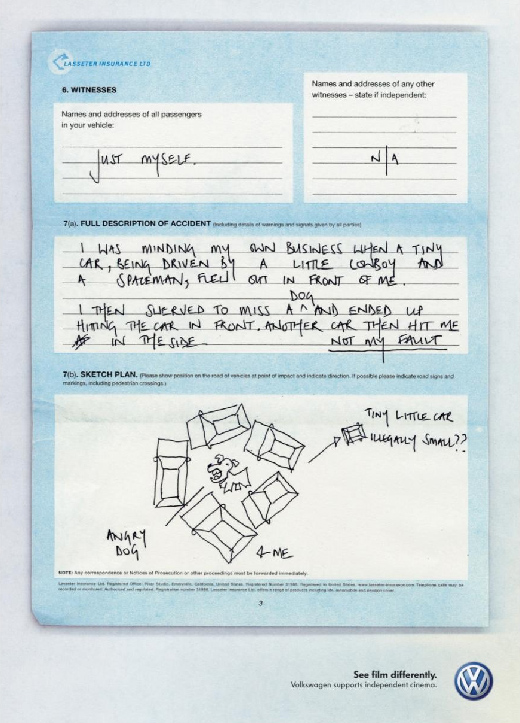 LASSETER INSURANCE LTD
6. WITNESSES
Names and addresses of all passengers
in your vehicle:
JUST MYSELF.
Names and addresses of any other
witnesses – state if independent:
N/A
7(a). FULL DESCRIPTION OF ACCIDENT (Including details of warnings and signals given by all parties)
I WAS MINDING MY OWN BUSINESS WHEN A TINY
CAR, BEING DRIVEN BY A LITTLE COWBOY AND
A SPACEMAN, FLEW OUT IN FRONT OF ME.
DOG
I THEN SWERVED TO MISS A ^ AND ENDED UP
HITING THE CAR IN FRONT. ANOTHER CAR THEN HIT ME
IN THE SIDE NOT MY FAULT
7(b). SKETCH PLAN. (Please show position on the road of vehicles at point of impact and indicate direction. If possible please indicate road signs and
markings, including pedestrian crossings.)
TINY LITTLE CAR
ILLEGALLY SMALL??
ANGRY
DOG
ME
NOTE: Any correspondence or Notices of Prosecution or other proceedings must be forwarded immediately.
3
See film differently.
Volkswagen supports independent cinema.